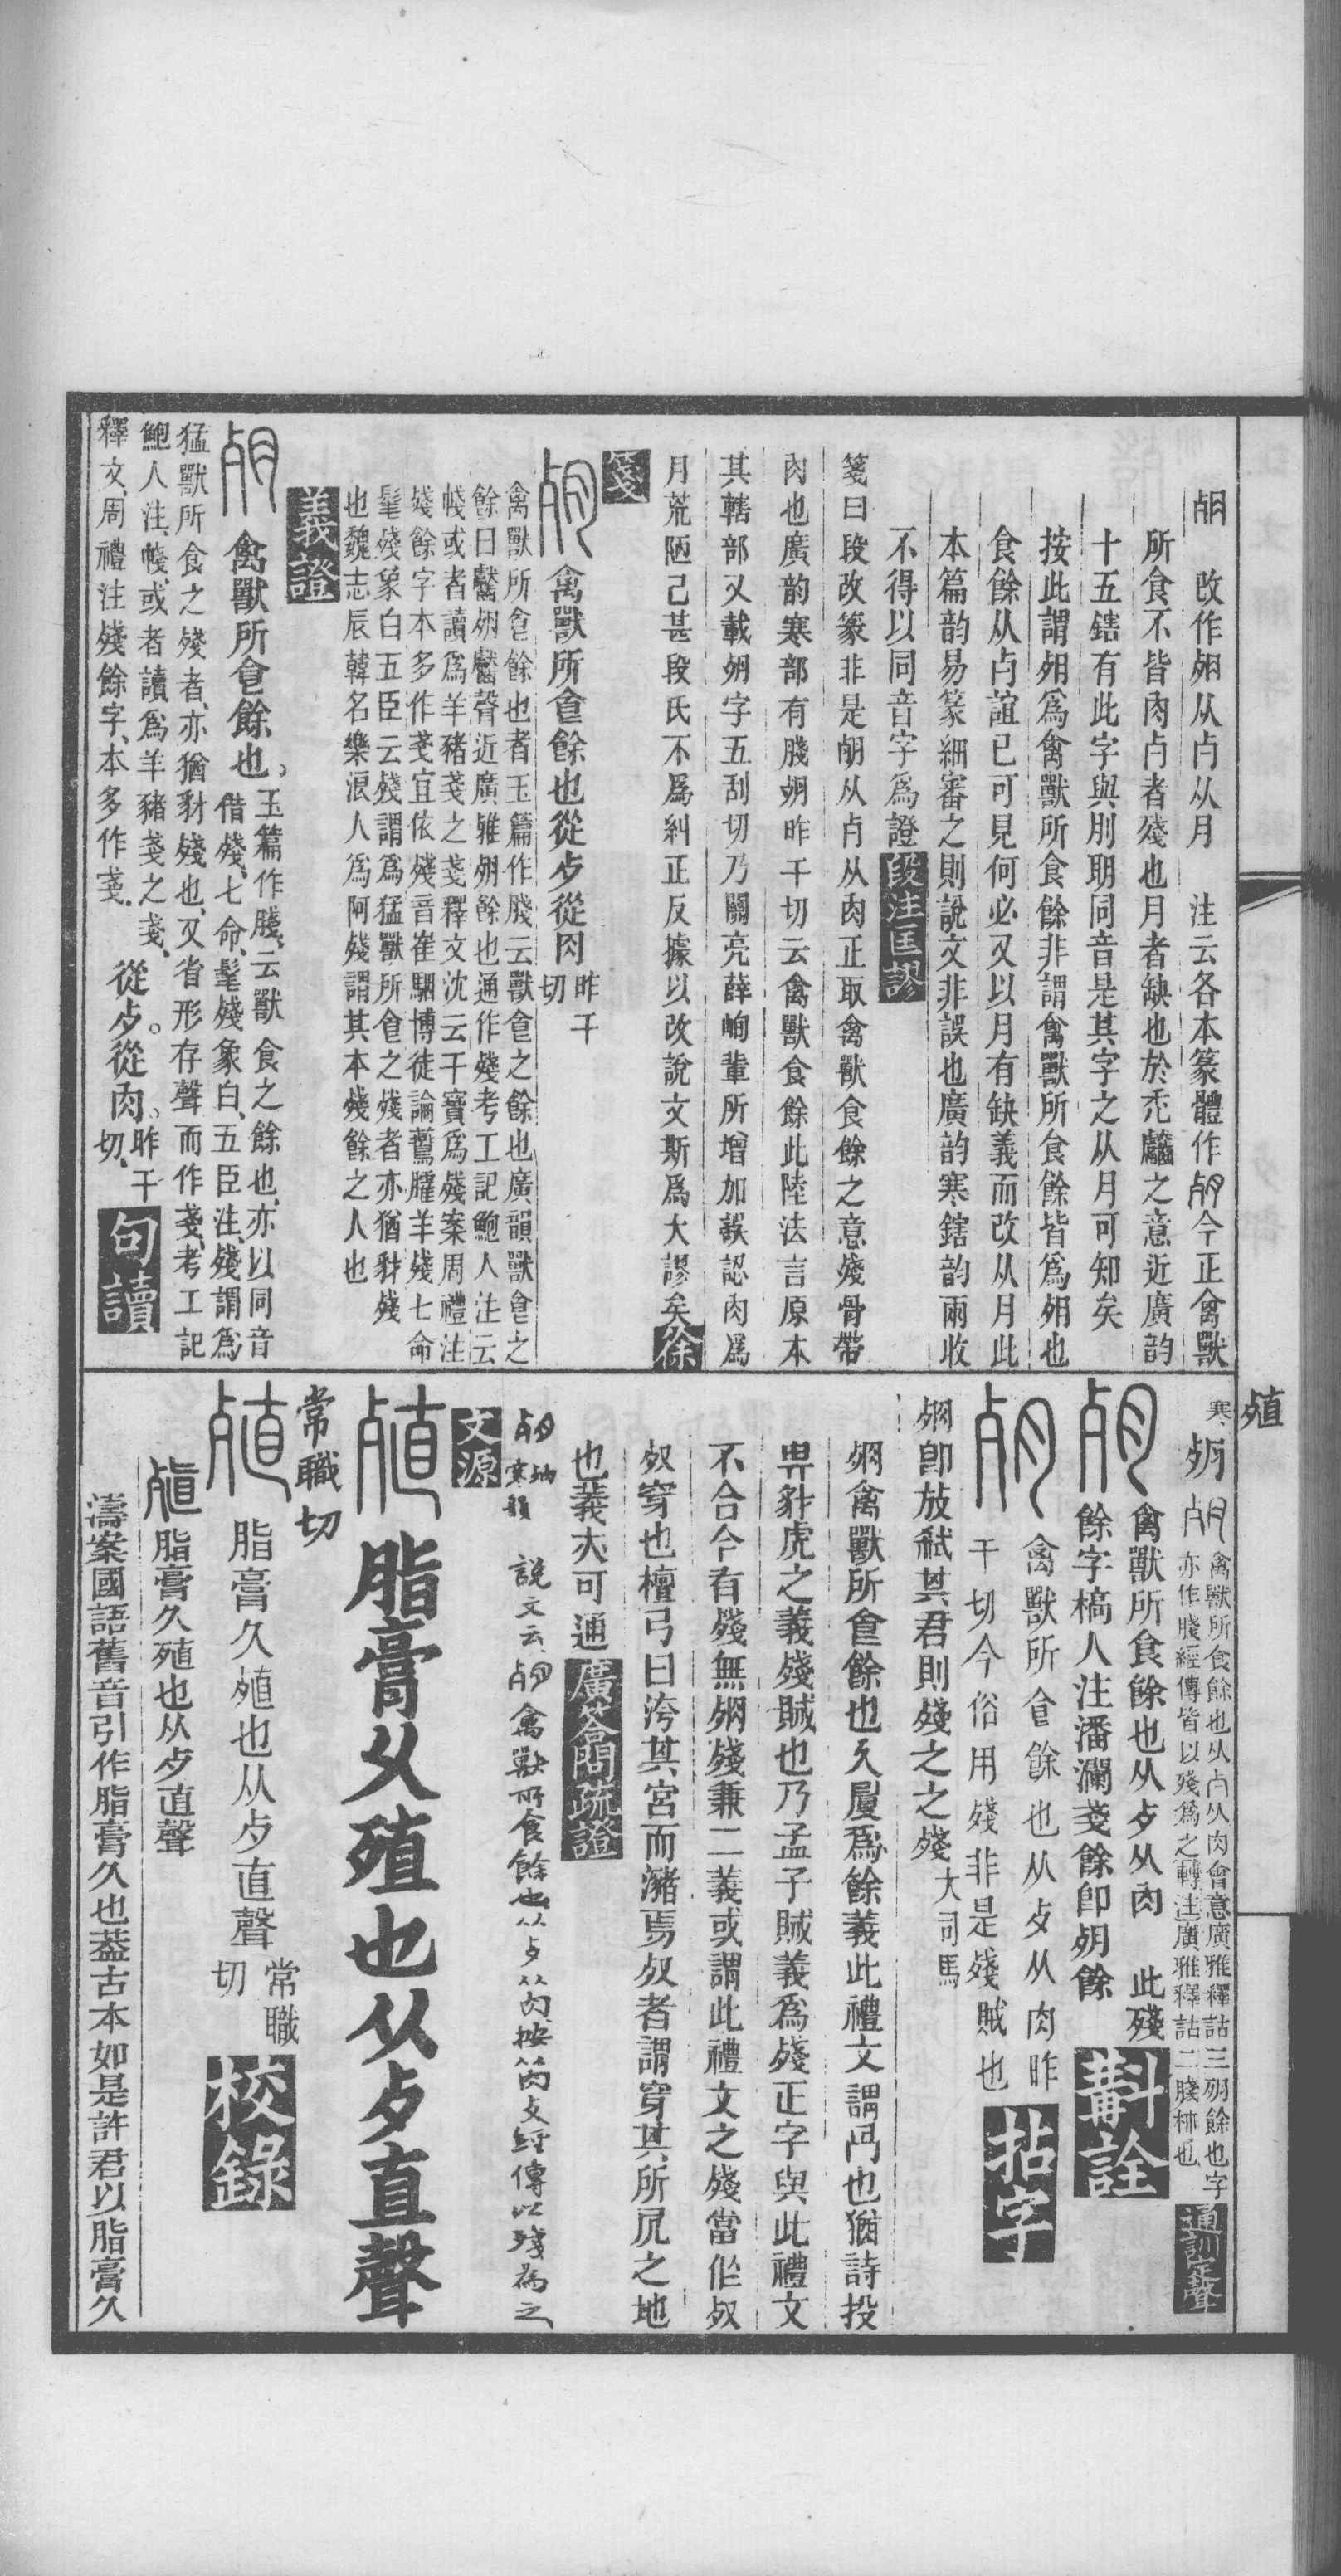 殖
𣦼 改作𣦻从歺从月 注云各本篆體作𣦼今正禽獸
所食不皆肉歺者殘也月者缺也於禿齾之意近廣韵
十五鎋有此字與刖明同音是其字之从月可知矣
按此謂𣦻爲禽獸所食餘非謂禽獸所食餘皆爲𣦻也
食餘从歺誼已可見何必又以月有缺義而改从月此
本篇韵易篆細審之則說文非誤也廣韵寒鎋韵兩收
不得以同音字爲證 段注匡謬
箋曰段改篆非是𣦼从歺从肉正取禽獸食餘之意殘骨帶
肉也廣韵寒部有膬𣦼昨干切云禽獸食餘此陸法言原本
其轄部又載𣦼字五刮切乃關亮薛峋輩所增加誤認肉爲
月荒陋已甚段氏不爲糾正反據以改說文斯爲大謬矣 徐
箋
𣦼 禽獸所食餘也從歺從肉 昨干切
禽獸所食餘也者玉篇作膬云獸食之餘也廣韻獸食之
餘曰齾𣦼齾聲近廣雅𣦼餘也通作殘考工記鮑人注云
帴或者讀爲羊豬戔之戔釋文沈云干寶爲殘案周禮注
殘餘字本多作戔宜依殘音崔駰博徒論鷰臛羊殘七命
髦殘象白五臣云殘謂爲猛獸所食之殘者亦猶豺殘
也魏志辰韓名樂浪人爲阿殘謂其本殘餘之人也
義證
𣦼 禽獸所食餘也。玉篇作膬、云獸食之餘也、亦以同音
借殘、七命、髦殘象白、五臣注、殘謂爲
猛獸所食之殘者、亦猶豺殘也、又省形存聲而作戔、考工記
鮑人注、帴、或者讀、爲羊豬戔之戔、
釋文、周禮注殘餘字、本多作戔、 從歺。從肉。昨干切、 句讀
寒 𣦼 禽獸所食餘也从歺从肉會意廣雅釋詁三𣦼餘也字
亦作膬經傳皆以殘爲之轉注廣雅釋詁二膬 也 通訓定聲
𣦼 禽獸所食餘也从歺从肉 此殘
餘字槁人注潘瀾戔餘卽𣦼餘 斠詮
𣦼 禽獸所食餘也从歺从肉昨
干切今俗用殘非是殘賊也 拈字
𣦼卽放弒其君則殘之之殘 大司馬
𣦼禽獸所食餘也又屢爲餘義此禮文謂冎也猶詩投
畀豺虎之義殘賊也乃孟子賊義爲殘正字與此禮文
不合今有殘無𣦼殘兼二義或謂此禮文之殘當作𣦻
𣦻穿也檀弓曰洿其宮而瀦焉𣦻者謂穿其所凥之地
也義亦可通 廣答問疏證
𣦼 寒韻 說文云𣦼禽獸所食餘也从歺从肉、按从肉、經傳以殘為之、
文源
殖 脂膏久殖也从歺直聲
常職切
殖 脂膏久殖也从歺直聲 常職切 校錄
殖 脂膏久殖也从歺直聲
濤案國語舊音引作脂膏久也蓋古本如是許君以脂膏久